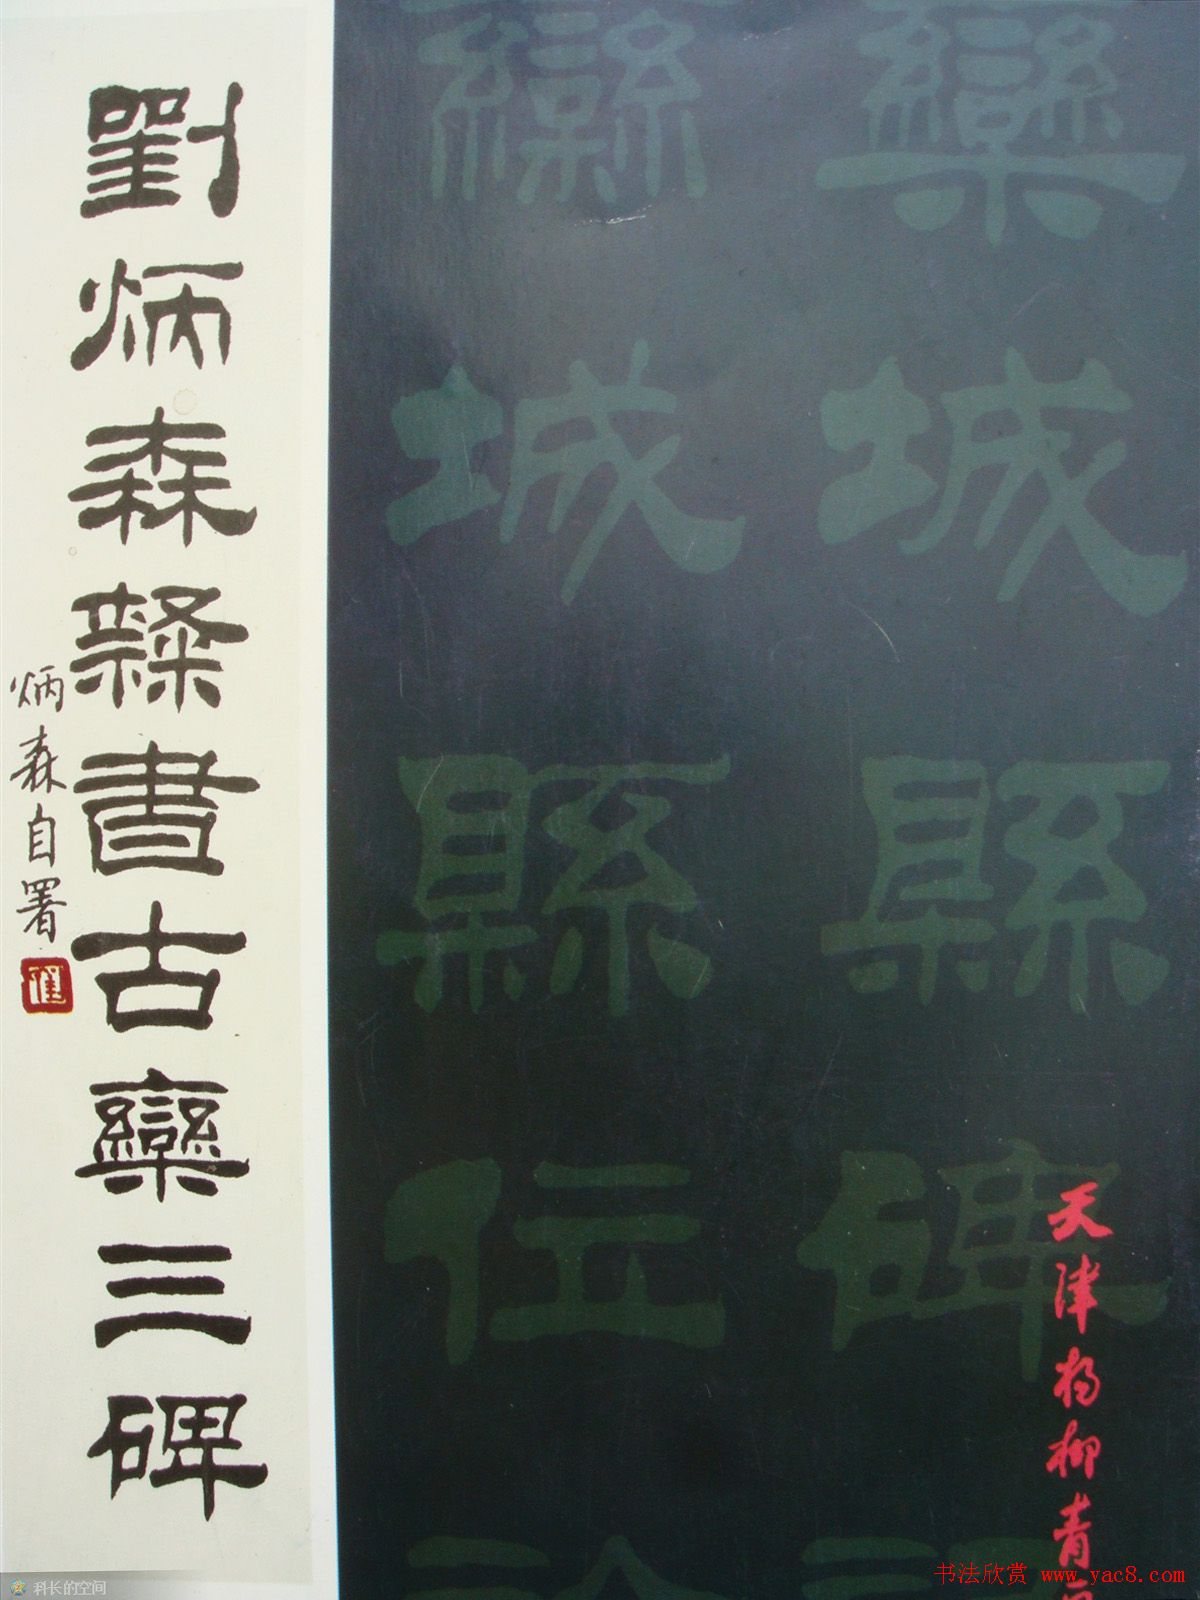 劉炳森隸書古欒三碑
炳森自署
欒城縣碑
城縣
天津杨柳青
科长的空间
书法欣赏 www.yac8.com